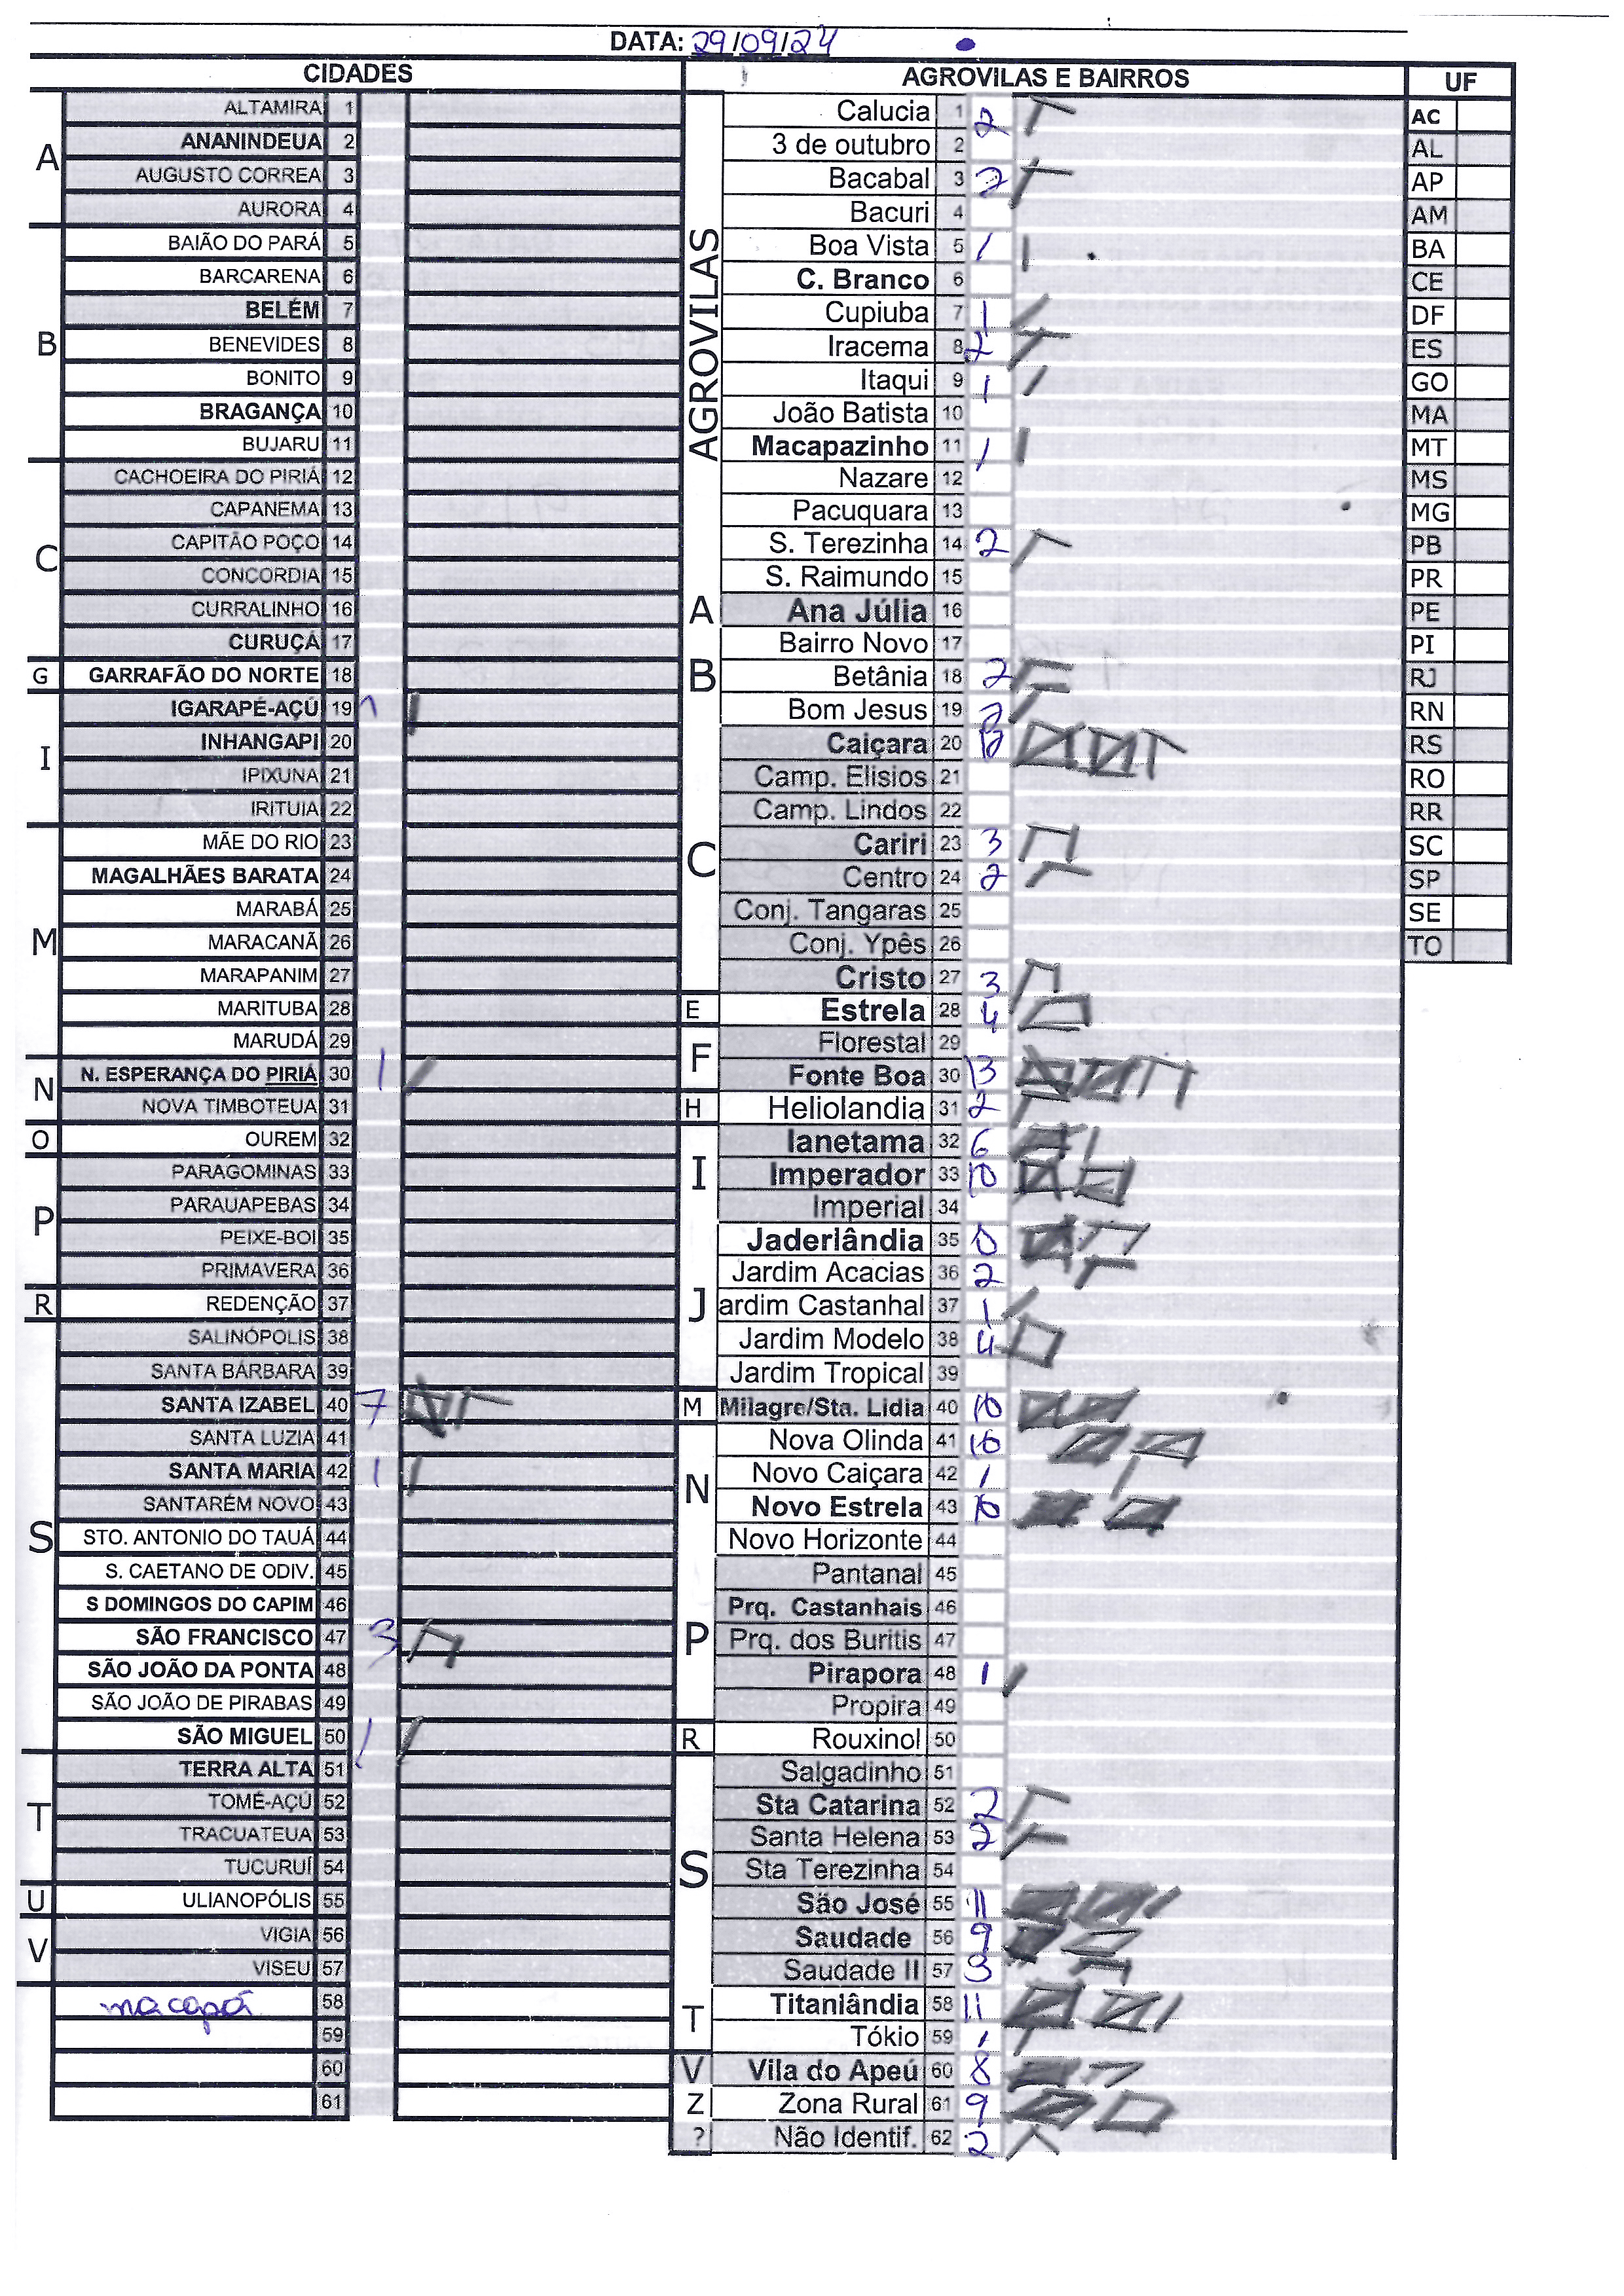 DATA: 29/09/24
CIDADES
A
ALTAMIRA 1
ANANINDEUA 2
AUGUSTO CORREA 3
AURORA 4
B
BAIÃO DO PARÁ 5
BARCARENA 6
BELÉM 7
BENEVIDES 8
BONITO 9
BRAGANÇA 10
BUJARU 11
C
CACHOEIRA DO PIRIÁ 12
CAPANEMA 13
CAPITÃO POÇO 14
CONCORDIA 15
CURRALINHO 16
CURUÇÁ 17
G
GARRAFÃO DO NORTE 18
I
IGARAPÉ-AÇÚ 19 1
INHANGAPI 20
IPIXUNA 21
IRITUIA 22
M
MÃE DO RIO 23
MAGALHÃES BARATA 24
MARABÁ 25
MARACANÃ 26
MARAPANIM 27
MARITUBA 28
MARUDÁ 29
N
N. ESPERANÇA DO PIRIÁ 30 1
NOVA TIMBOTEUA 31
O
OUREM 32
P
PARAGOMINAS 33
PARAUAPEBAS 34
PEIXE-BOI 35
PRIMAVERA 36
R
REDENÇÃO 37
S
SALINÓPOLIS 38
SANTA BÁRBARA 39
SANTA IZABEL 40 7
SANTA LUZIA 41
SANTA MARIA 42 1
SANTARÉM NOVO 43
STO. ANTONIO DO TAUÁ 44
S. CAETANO DE ODIV. 45
S DOMINGOS DO CAPIM 46
SÃO FRANCISCO 47 3
SÃO JOÃO DA PONTA 48
SÃO JOÃO DE PIRABAS 49
SÃO MIGUEL 50 1
T
TERRA ALTA 51
TOMÉ-AÇÚ 52
TRACUATEUA 53
TUCURUÍ 54
U
ULIANOPÓLIS 55
V
VIGIA 56
VISEU 57
macapá 58
59
60
61
AGROVILAS E BAIRROS
AGROVILAS
Calucia 1 2
3 de outubro 2
Bacabal 3 2
Bacuri 4
Boa Vista 5 1
C. Branco 6
Cupiuba 7 1
Iracema 8 2
Itaqui 9 1
João Batista 10
Macapazinho 11 1
Nazare 12
Pacuquara 13
S. Terezinha 14 2
S. Raimundo 15
A
Ana Júlia 16
B
Bairro Novo 17
Betânia 18 2
Bom Jesus 19 2
C
Caiçara 20 12
Camp. Elisios 21
Camp. Lindos 22
Cariri 23 3
Centro 24 2
Conj. Tangaras 25
Conj. Ypês 26
Cristo 27 3
E
Estrela 28 4
F
Florestal 29
Fonte Boa 30 13
H
Heliolandia 31 2
I
Ianetama 32 6
Imperador 33 10
Imperial 34
J
Jaderlândia 35
Jardim Acacias 36 2
ardim Castanhal 37 1
Jardim Modelo 38 4
Jardim Tropical 39
M
Milagre/Sta. Lidia 40 10
N
Nova Olinda 41 10
Novo Caiçara 42 1
Novo Estrela 43 10
Novo Horizonte 44
P
Pantanal 45
Prq. Castanhais 46
Prq. dos Buritis 47
Pirapora 48 1
Propira 49
R
Rouxinol 50
S
Salgadinho 51
Sta Catarina 52 2
Santa Helena 53 2
Sta Terezinha 54
São José 55 11
Saudade 56 9
Saudade II 57 3
T
Titanlândia 58 11
Tókio 59 1
V
Vila do Apeú 60 8
Z
Zona Rural 61 9
?
Não Identif. 62 2
UF
AC
AL
AP
AM
BA
CE
DF
ES
GO
MA
MT
MS
MG
PB
PR
PE
PI
RJ
RN
RS
RO
RR
SC
SP
SE
TO